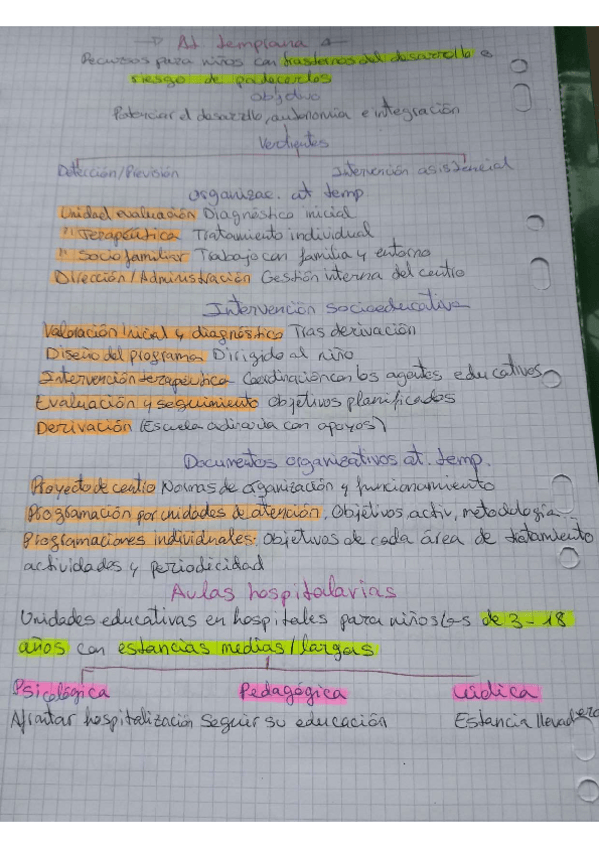 At temprana
Recursos para niños con trastornos del desarrollo o
riesgo de padecerlos
Objetivo
Potenciar el desarrollo, autonomía e integración
Vertientes
Detección/Previsión Intervención asistencial
Organizac. at temp
Unidad evaluación Diagnóstico inicial
"" Terapéutica Tratamiento individual
"" Sociofamiliar Trabajo con familia y entorno
Dirección/Administración Gestión interna del centro
Intervención socioeducativa
Valoración inicial y diagnóstico Tras derivación
Diseño del programa Dirigido al niño
Intervención terapeútica Coordinación con los agentes educativos
Evaluación y seguimiento objetivos planificados
Derivación (Escuela ordinaria con apoyos)
Documentos organizativos at. temp.
Proyecto de centro Normas de organización y funcionamiento
Programación por unidades de atención. Objetivos, activ, metodología
Programaciones individuales: Objetivos de cada área de tratamiento
actividades y periodicidad
Aulas hospitalarias
Unidades educativas en hospitales para niños/a-s de 3-18
años con estancias medias/largas
Psicológica Pedagógica Lúdica
Afrontar hospitalización Seguir su educación Estancia llevadera